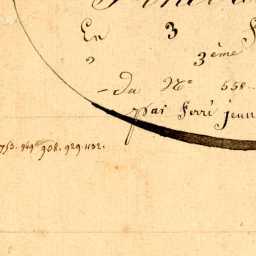 En 3
3ème
du No 558.
par Ferré jeun
753. 969. 908. 929. 1132.